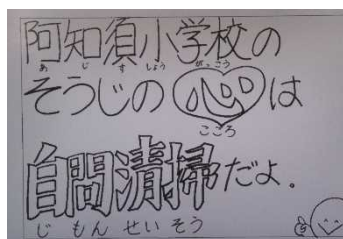 阿知須小学校の
あじすしょうがっこう
そうじの心は
こころ
自問清掃だよ.
じもんせいそう